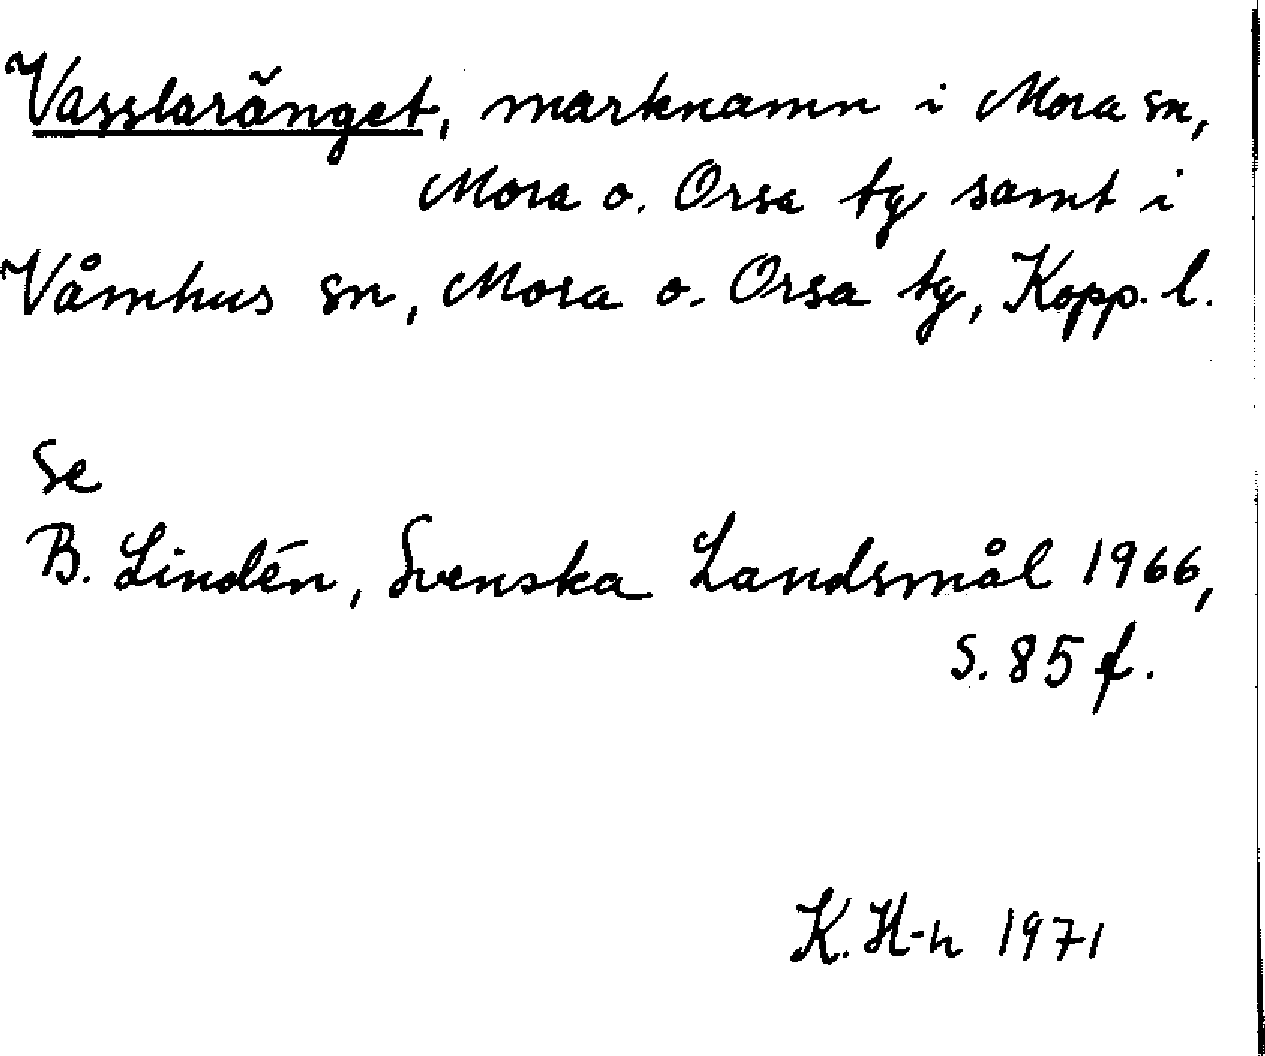 Vasslaränget, marknamn i Mora sn,
Mora o. Orsa tg samt i
Våmhus sn, Mora o. Orsa tg, Kopp. l.
se
B. Lindén, Svenska Landsmål 1966,
s. 85 f.
K. H-n 1971